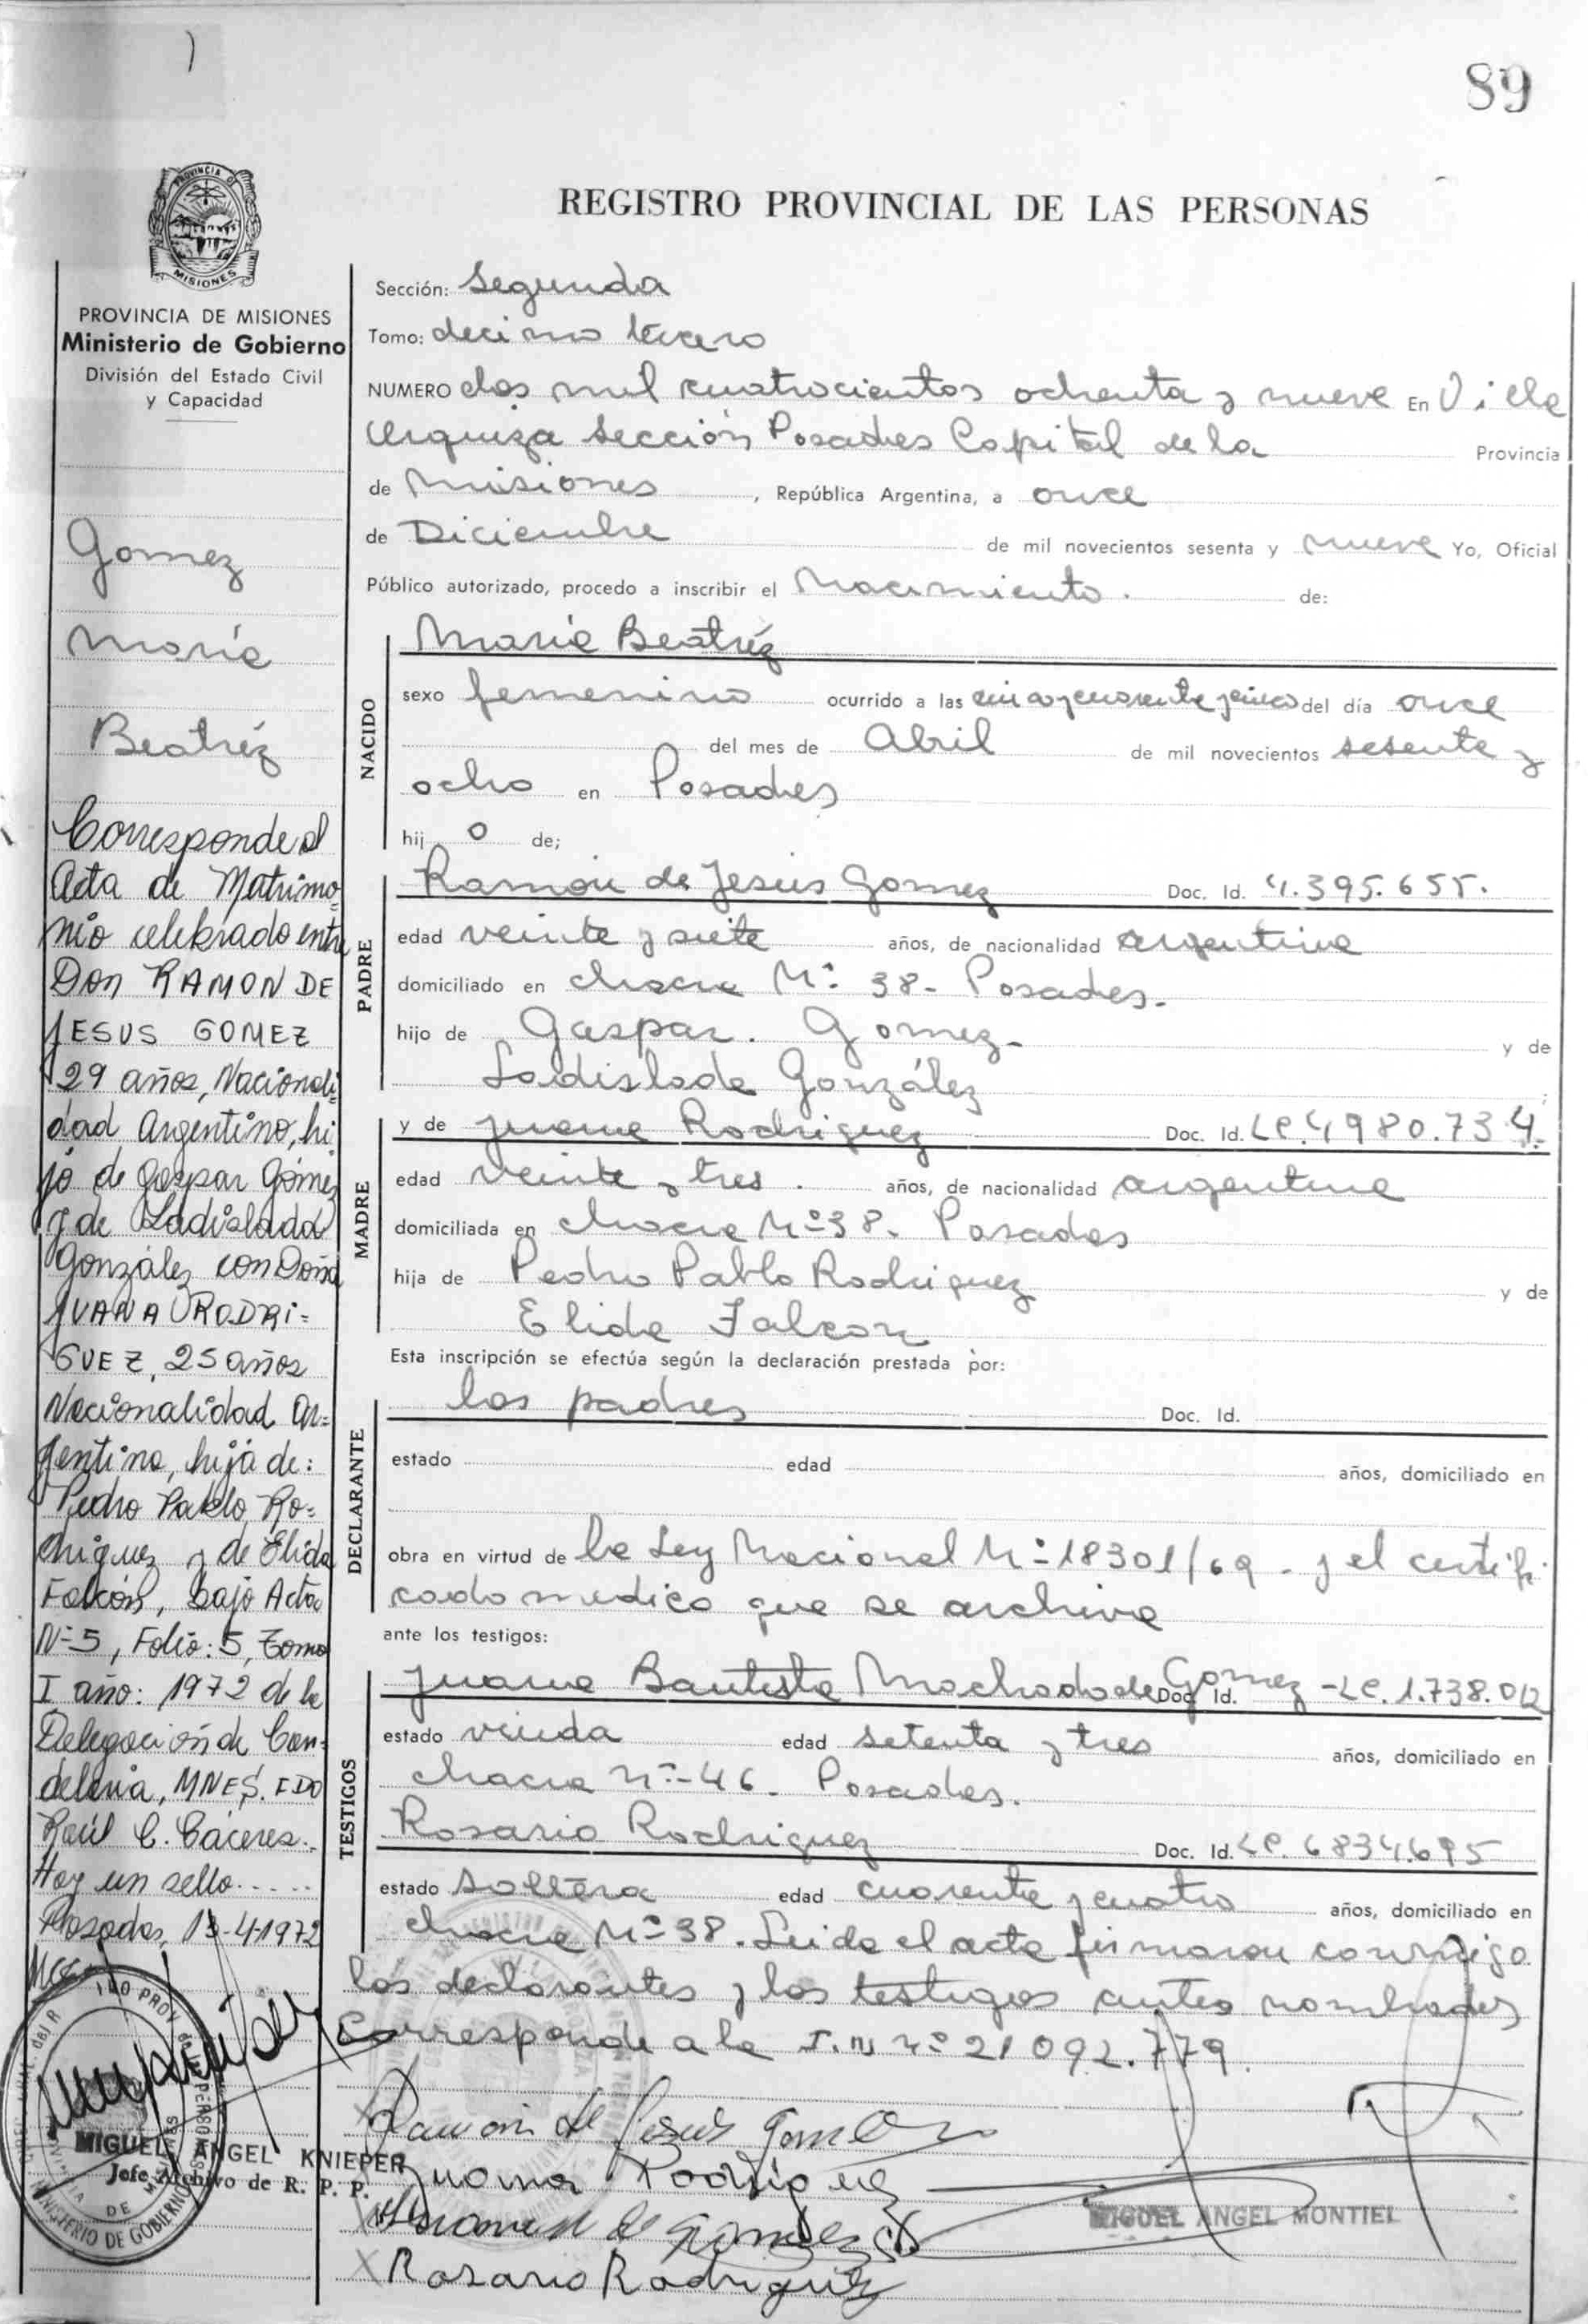 89
REGISTRO PROVINCIAL DE LAS PERSONAS
PROVINCIA DE MISIONES
Ministerio de Gobierno
División del Estado Civil
y Capacidad
Gomez
María
Beatréz
Corresponde al
Acta de Matrimo
nio celebrado entre
Don RAMON DE
JESUS GOMEZ
29 años, Nacionali
dad Argentino, hi
jo de Gaspar Gómez
y de Ladislada
González con Doña
JUANA RODRI=
GUEZ, 25 años
Nacionalidad Ar=
gentina, hija de:
Pedro Pablo Ro=
driguez y de Elida
Falcón, bajo Acta
N=5, Folio: 5, Tomo
I año: 1972 de la
Delegación de Can-
delaria, MNES. FDO
Raúl C. Cáceres.
Hay un sello.....
Posadas, 13-4-1972
MIGUEL ANGEL KNIEPER
Jefe Archivo de R. P. P.
Sección: Segunda
Tomo: decimo tercero
NUMERO dos mil cuatrocientos ochenta y nueve En Villa
Urquiza Sección Posadas Capital de la Provincia
de Misiones, República Argentina, a once
de Diciembre de mil novecientos sesenta y nueve Yo, Oficial
Público autorizado, procedo a inscribir el Nacimiento. de:
NACIDO
María Beatréz
sexo femenino ocurrido a las cinco y cuarenta y cinco del día once
del mes de Abril de mil novecientos sesenta y
ocho en Posadas
hij o de;
PADRE
Ramón de Jesús Gomez Doc. Id. 4.395.655.
edad veinte y siete años, de nacionalidad argentina
domiciliado en chacra N: 38- Posadas.
hijo de Gaspar. Gomez- y de
Ladislada González
MADRE
y de Juana Rodriguez Doc. Id. LC. 4980.734.
edad veinte y tres. años, de nacionalidad argentina
domiciliada en chacra Nº38. Posadas
hija de Pedro Pablo Rodriguez y de
Elida Falcon
Esta inscripción se efectúa según la declaración prestada por:
DECLARANTE
los padres Doc. Id.
estado edad años, domiciliado en
obra en virtud de la Ley Nacional Nº 18301/69 - y el certifi-
cado medico que se archiva
ante los testigos:
TESTIGOS
Juana Bautista Machado de Gomez Doc. Id. -LC. 1.738.012
estado viuda edad setenta y tres años, domiciliado en
chacra nº-46. Posadas.
Rosario Rodriguez Doc. Id. LC. 6834.695
estado soltera edad cuarenta y cuatro años, domiciliado en
chacra Nº38. Leida el acta firmaron conmigo
los declarantes y los testigos antes nombrados
Corresponde a la I.N nº 21092.779.
Ramón de Jesús Gomez
Juana Rodriguez
de Gomez
Rosario Rodriguez
MIGUEL ANGEL MONTIEL